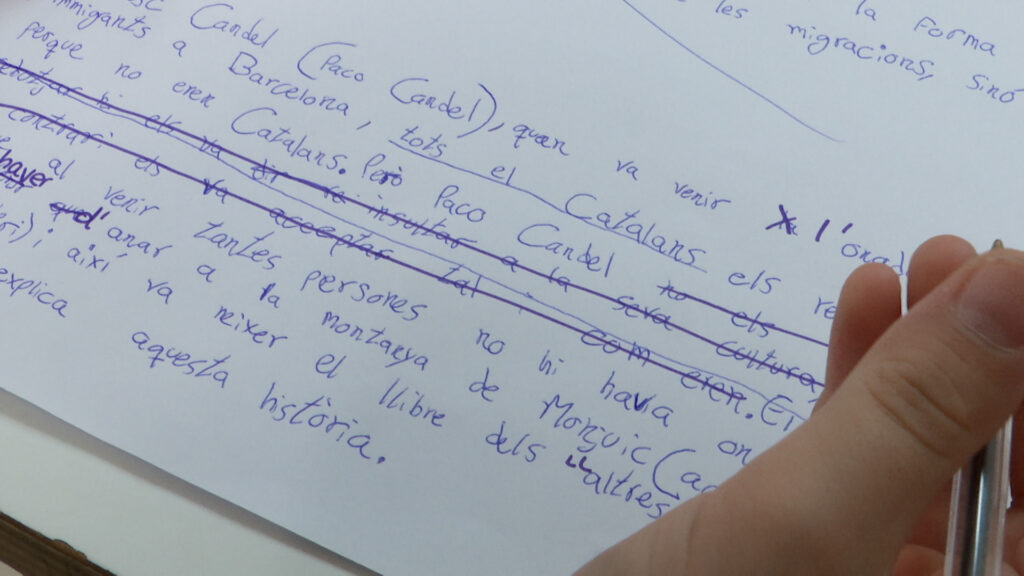 la forma
les migracions, sinó
Candel (Paco Candel), quan va venir l'onad
immigrants a Barcelona, tots el Catalans els re
perque no eren Catalans. Però Paco Candel no els
hi els va dir insultar a la seva cultura,
contrari els va acceptar tal com eren. El
al venir tantes persones no hi havia on
haver d'anar a la montanya de Monjuic (aq
així va neixer el llibre dels "altres
explica aquesta història.